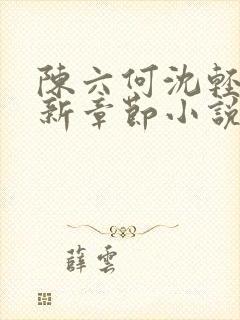 陳六何沈輕
新章節小說
薛雲